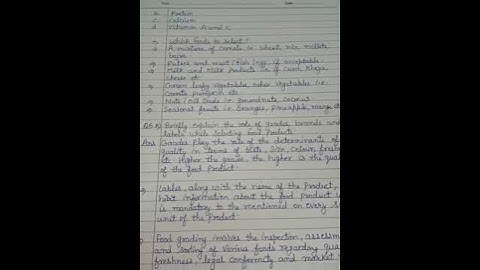 b. Protein
c. Calcium
d. Vitamin A and C.
→ Which foods to select?
→ A mixture of cereals i.e. wheat, rice, millets
→ Pulses and meat / fish / egg, if acceptable.
→ Milk and Milk products i.e. if curd, Khoya,
→ Green leafy vegetables, other vegetables i.e.
pumpkin etc
→ Nuts / oil seeds i.e. groundnuts, coconut.
→ Seasonal fruits i.e. oranges, pineapple,
Briefly explain the role of grades, brands and
labels while selecting food products.
Ans Grades play the role of the determinants of
quality in terms of size, colour,
etc. Higher the grade, the higher is the
of the food product.
→ Lables, along with the name of the product,
information about the food product
is mandatory to the mentioned on every
unit of the product.
→ Food grading involves the inspection,
and sorting of various foods regarding
freshness, legal conformity and market